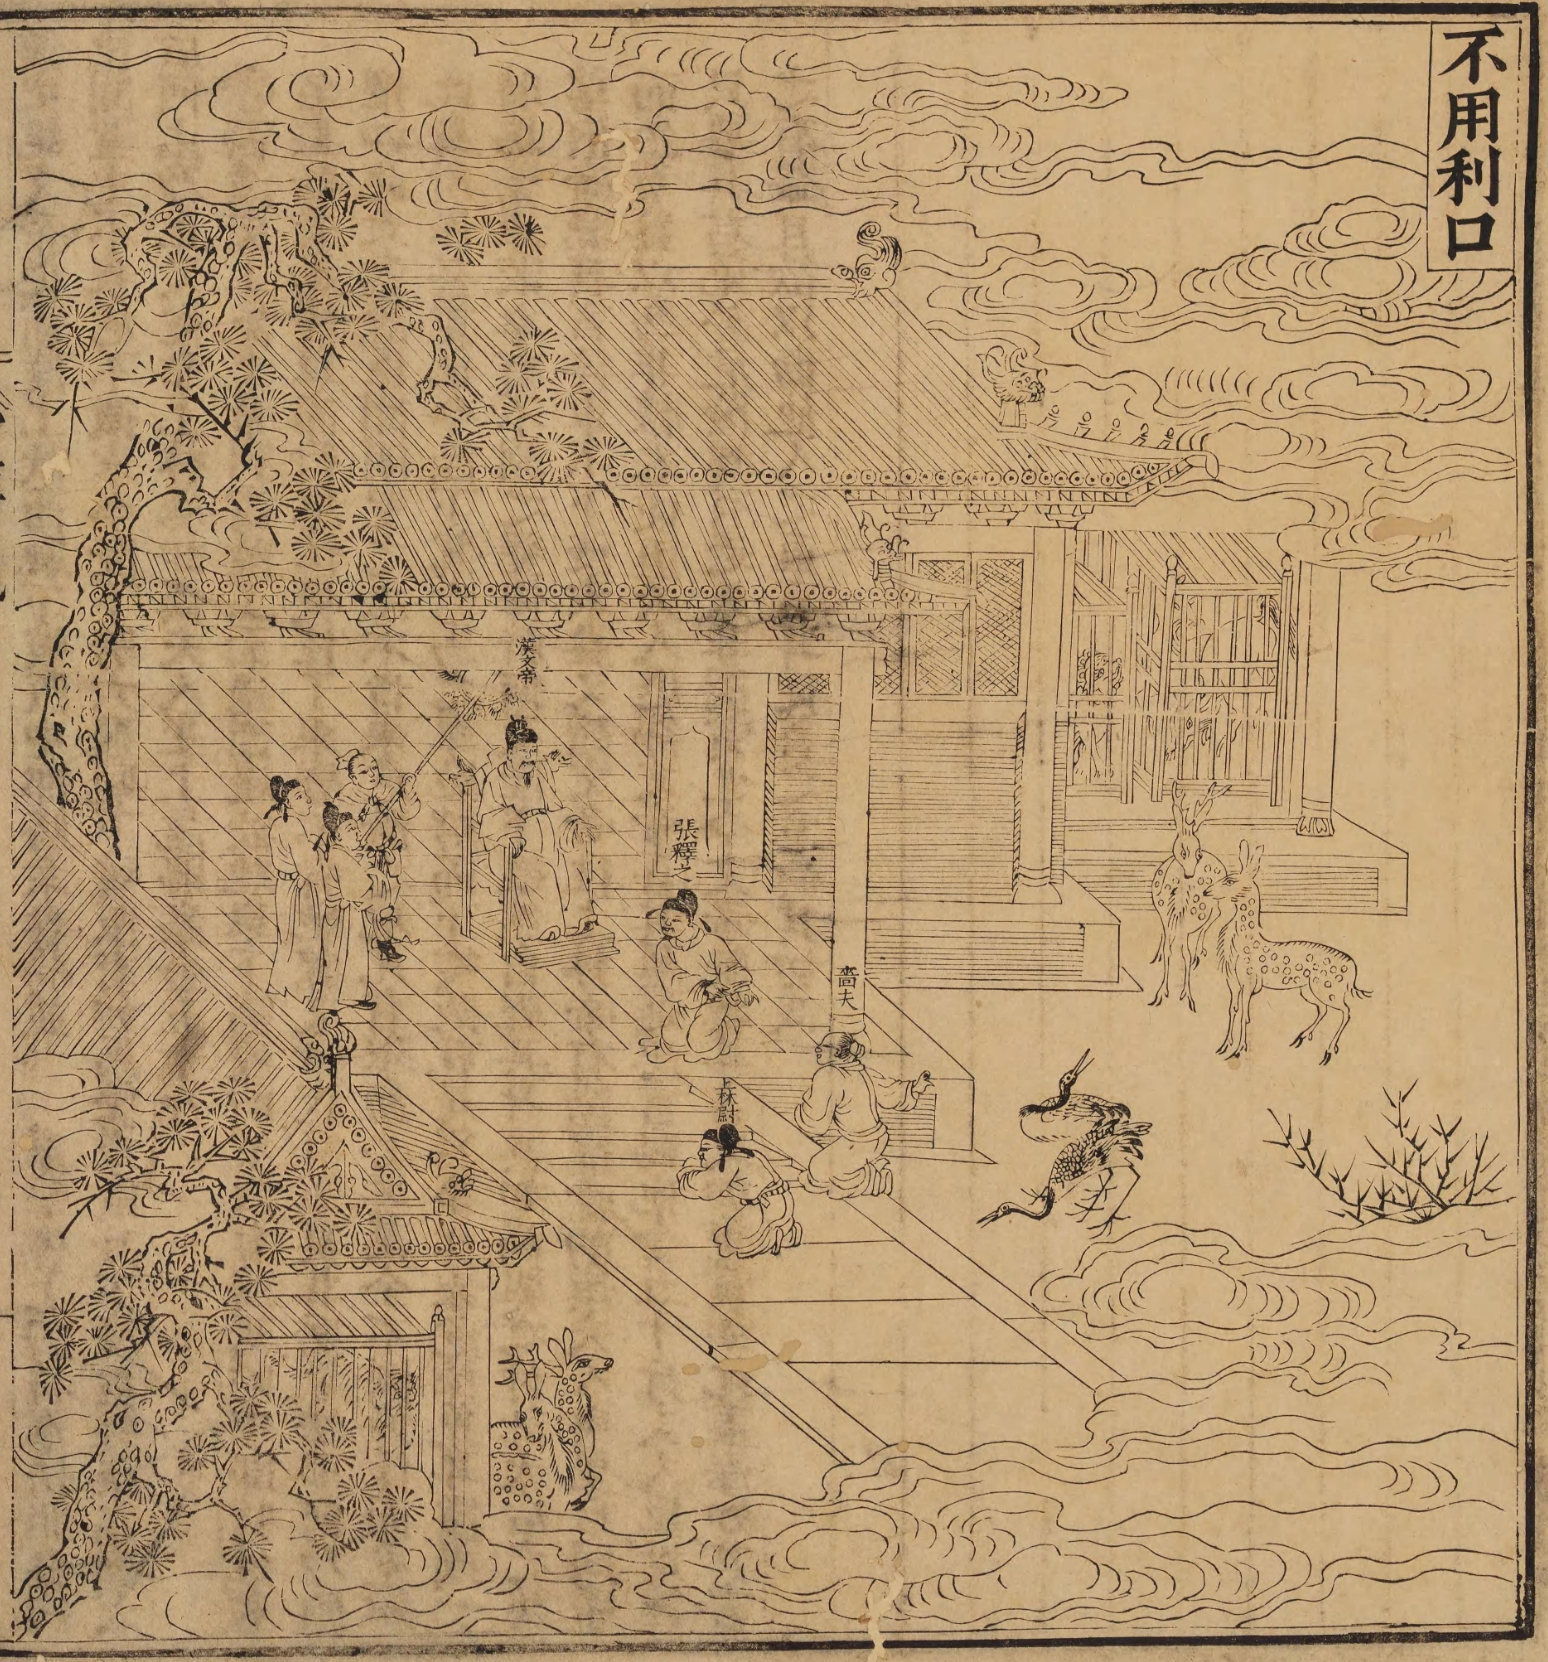 不用利口
漢文帝
張釋之
嗇夫
上林尉